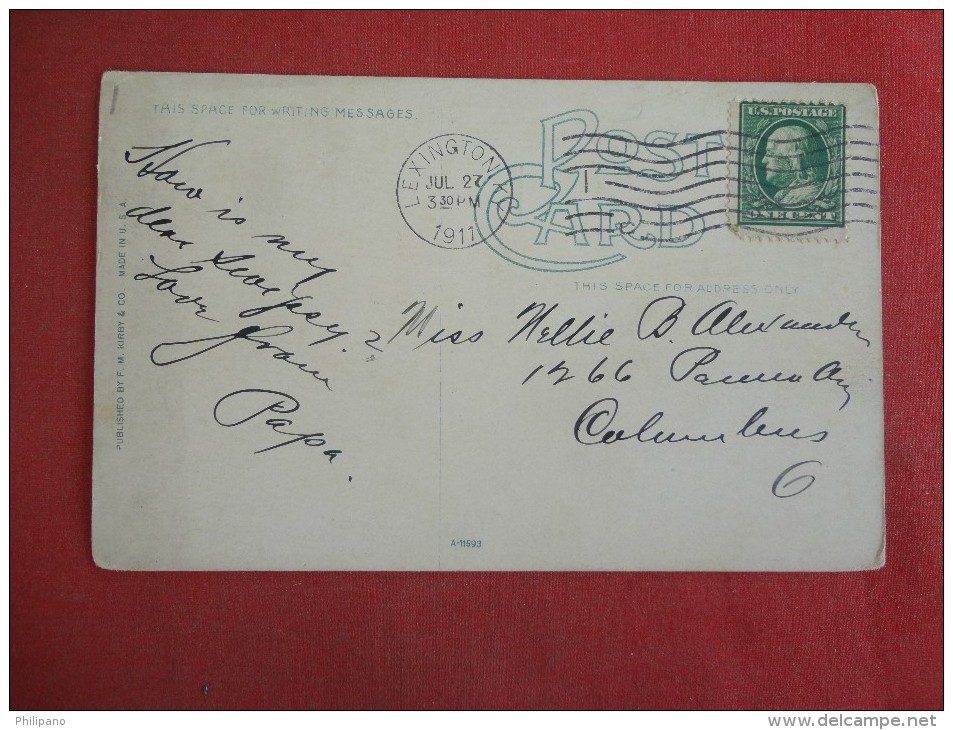 THIS SPACE FOR WRITING MESSAGES.
How is my
dear
Love from
Papa.
PUBLISHED BY F. M. KIRBY & CO. MADE IN U. S. A.
POST CARD
LEXINGTON, KY.
JUL 27
3 30 PM
1911
1
U.S. POSTAGE
ONE CENT
THIS SPACE FOR ADDRESS ONLY
Miss Nellie B. Alexander
1266
Columbus
O
A-11593
Philipano
www.delcampe.net